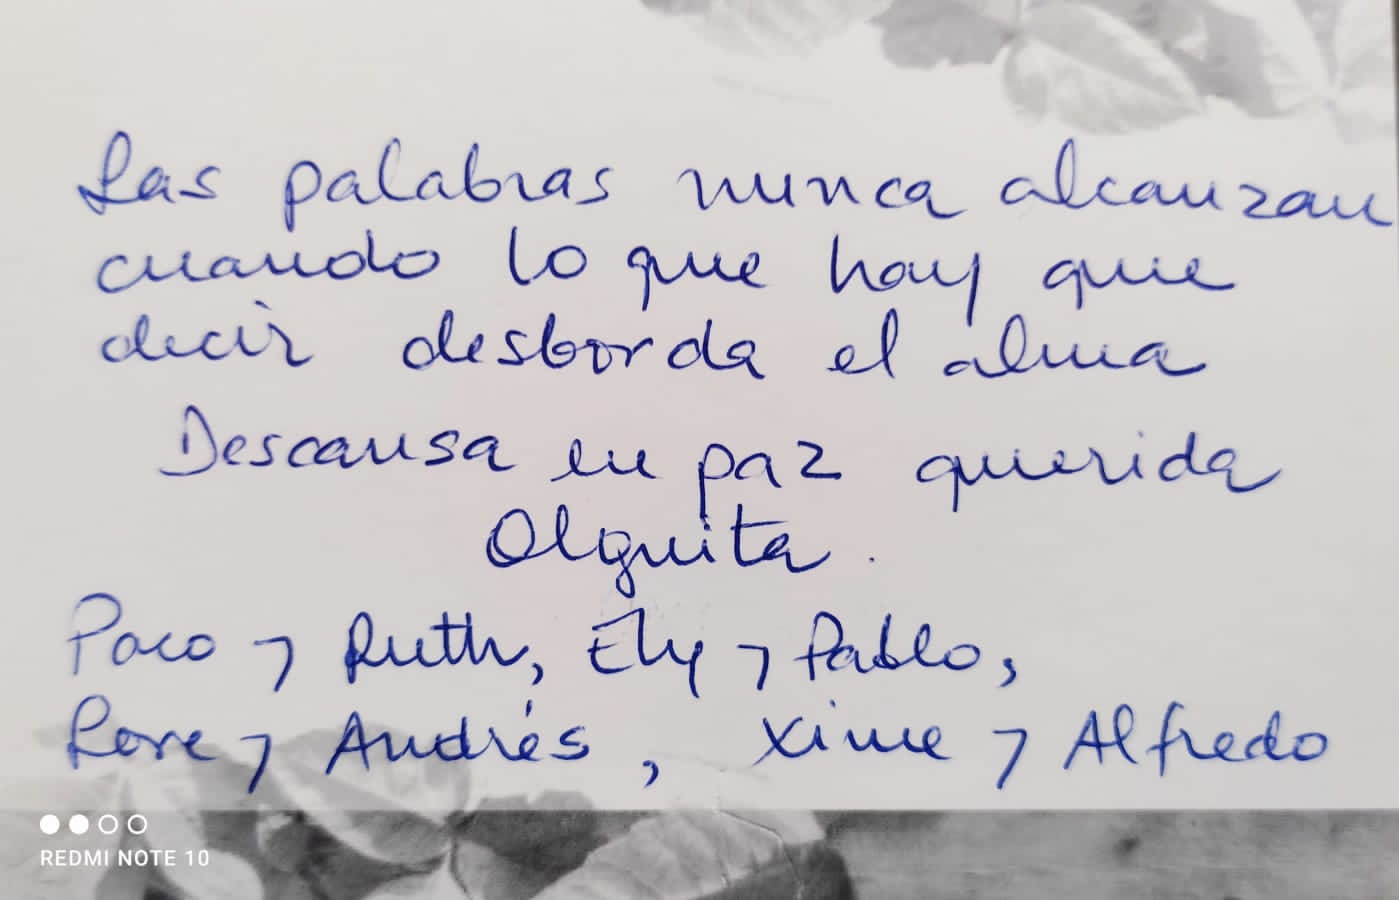 Las palabras nunca alcanzan
cuando lo que hay que
decir desborda el alma
Descansa en paz querida
Olguita.
Paco y Ruth, Ely y Pablo,
y Andrés, Xime y Alfredo
REDMI NOTE 10